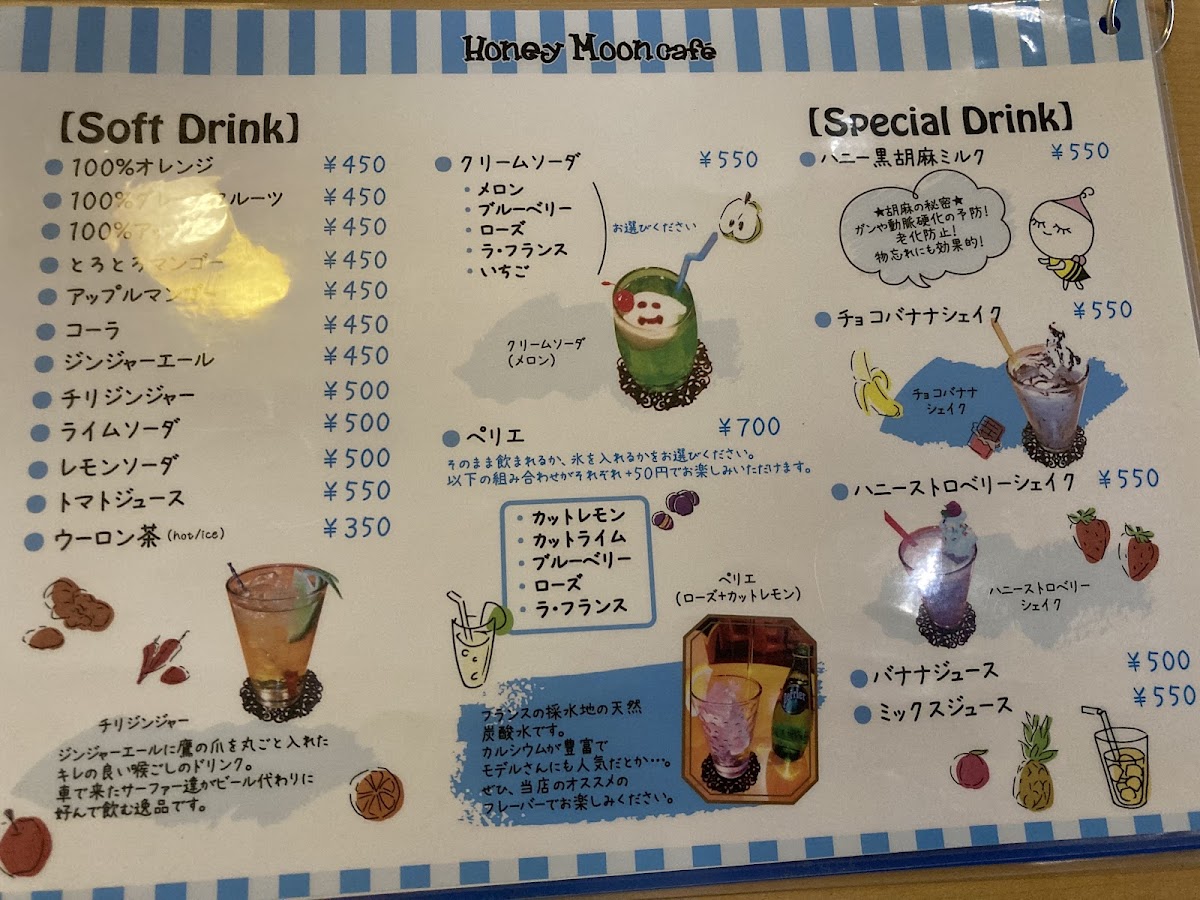 Honey Moon café
【Soft Drink】
100%オレンジ ￥450
100%グレープフルーツ ￥450
100%アップル ￥450
とろとろマンゴー ￥450
アップルマンゴー ￥450
コーラ ￥450
ジンジャーエール ￥450
チリジンジャー ￥500
ライムソーダ ￥500
レモンソーダ ￥500
トマトジュース ￥550
ウーロン茶(hot/ice) ￥350
チリジンジャー
ジンジャーエールに鷹の爪を丸ごと入れた
キレの良い喉ごしのドリンク。
車で来たサーファー達がビール代わりに
好んで飲む逸品です。
クリームソーダ ￥550
・メロン
・ブルーベリー
・ローズ
・ラ・フランス
・いちご
お選びください
クリームソーダ
(メロン)
ペリエ ￥700
そのまま飲まれるか、氷を入れるかをお選びください。
以下の組み合わせがそれぞれ+50円でお楽しみいただけます。
・カットレモン
・カットライム
・ブルーベリー
・ローズ
・ラ・フランス
ペリエ
(ローズ+カットレモン)
フランスの採水地の天然
炭酸水です。
カルシウムが豊富で
モデルさんにも人気だとか…。
ぜひ、当店のオススメの
フレーバーでお楽しみください。
【Special Drink】
ハニー黒胡麻ミルク ￥550
★胡麻の秘密★
ガンや動脈硬化の予防!
老化防止!
物忘れにも効果的!
チョコバナナシェイク ￥550
チョコバナナ
シェイク
ハニーストロベリーシェイク ￥550
ハニーストロベリー
シェイク
バナナジュース ￥500
ミックスジュース ￥550